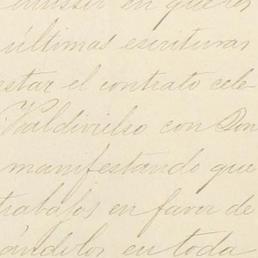 en que los
últimas escrituras
estar el contrato cele-
Valdivielso con Don
manifestando que
trabajos en favor de
ándolos en toda